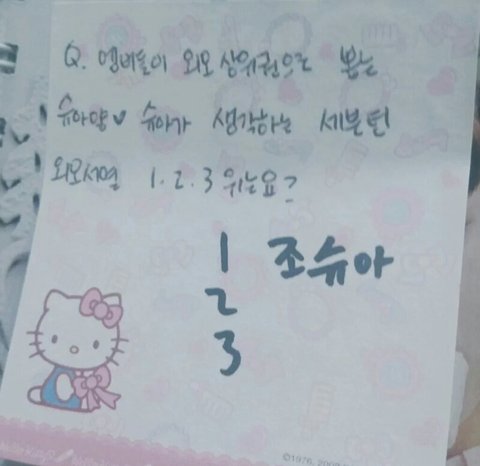 Q. 멤버들이 외모 상위권으로 뽑는
슈아양♥ 슈아가 생각하는 세븐틴
외모서열 1. 2. 3 위는요?
1 조슈아
2
3
©1976, 200